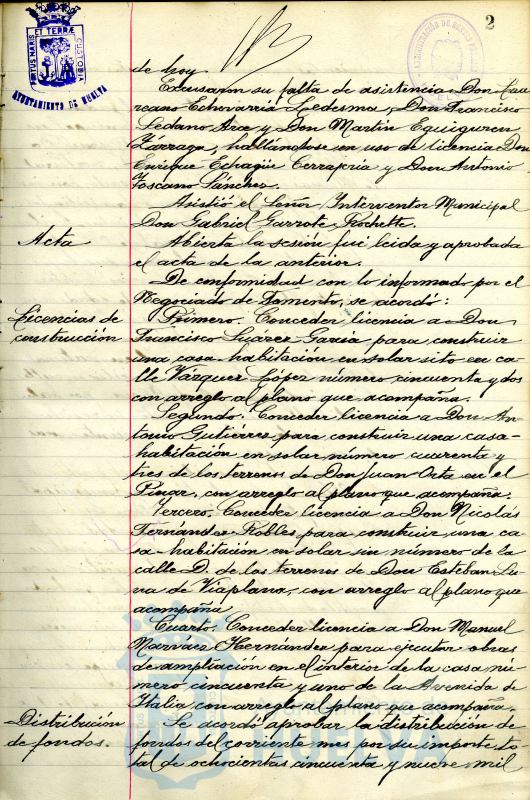 2
PORTUS MARIS ET TERRÆ CUSTODIA
AYUNTAMIENTO DE HUELVA
de hoy.
Excusaron su falta de asistencia Don Lau-
reano Echevarría Ledesma, Don Francisco
Sedano Arce y Don Martín Equiguren
Zarraga, hallándose en uso de licencia Don
Enrique Echagüe Cerrajería y Don Antonio
Toscano Sánchez.
Asistió el Señor Interventor Municipal
Don Gabriel Garrote Rochette.
Acta
Abierta la sesión fué leida y aprobada
el acta de la anterior.
De conformidad con lo informado por el
Negociado de Fomento, se acordó:
Licencias de
construcción
Primero. Conceder licencia a Don
Francisco Suárez García para construir
una casa-habitación en solar sito en ca-
lle Vázquez López número cincuenta y dos
con arreglo al plano que acompaña.
Segundo. Conceder licencia a Don An-
tonio Gutiérrez para construir una casa-
habitación en solar número cuarenta y
tres de los terrenos de Don Juan Orta en el
Pinar, con arreglo al plano que acompaña.
Tercero. Conceder licencia a Don Nicolás
Fernández Robles para construir una ca-
sa-habitación en solar sin número de la
calle D. de los terrenos de Don Esteban Lu-
na de Viaplana, con arreglo al plano que
acompaña
Cuarto. Conceder licencia a Don Manuel
Narváez Hernández para ejecutar obras
de ampliación en el interior de la casa nú-
mero cincuenta y uno de la Avenida de
Italia, con arreglo al plano que acompaña.
Distribución
de fondos.
Se acordó aprobar la distribución de
fondos del corriente mes por su importe to-
tal de ochocientas cincuenta y nueve mil